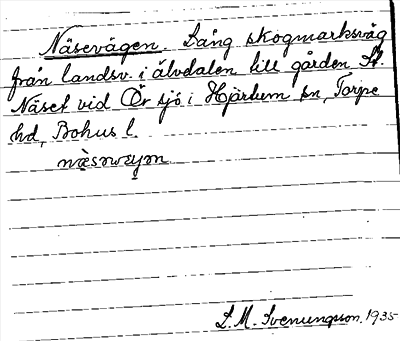 Näsevägen. Lång skogmarksväg
från landsv. i älvdalen till gården St.
Näset vid Öresjö i Hjärtum sn, Torpe
hd, Bohus l.
L. M. Svenungsson. 1935